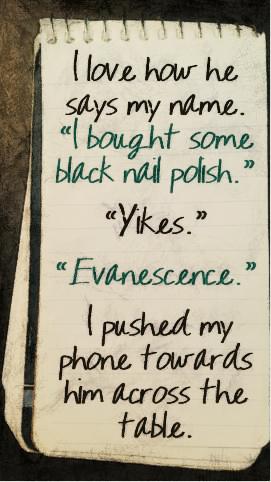 I love how he
says my name.
“I bought some
black nail polish.”
“Yikes.”
“Evanescence.”
I pushed my
phone towards
him across the
table.